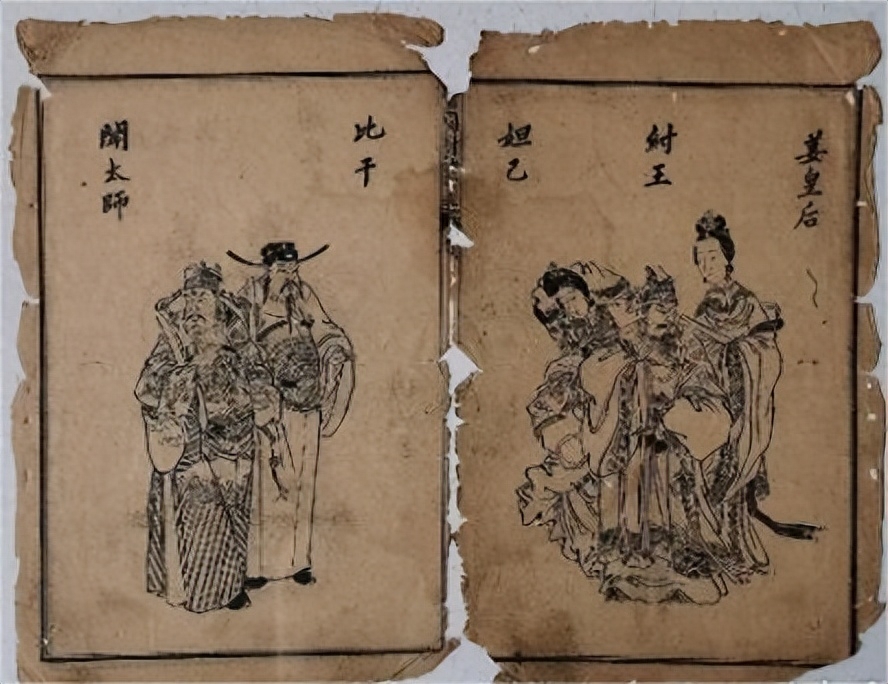 姜皇后
紂王
妲己
比干
聞太師